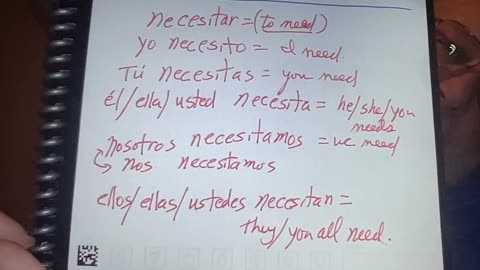 necesitar = (to need)
yo necesito = I need.
Tú necesitas = you need
él/ella/usted necesita = he/she/you
needs
nosotros necesitamos = we need
nos necestamos
ellos/ellas/ustedes necesitan =
they/you all need.